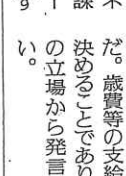 だ。歳費等の支給
決めることであり
の立場から発言
い。